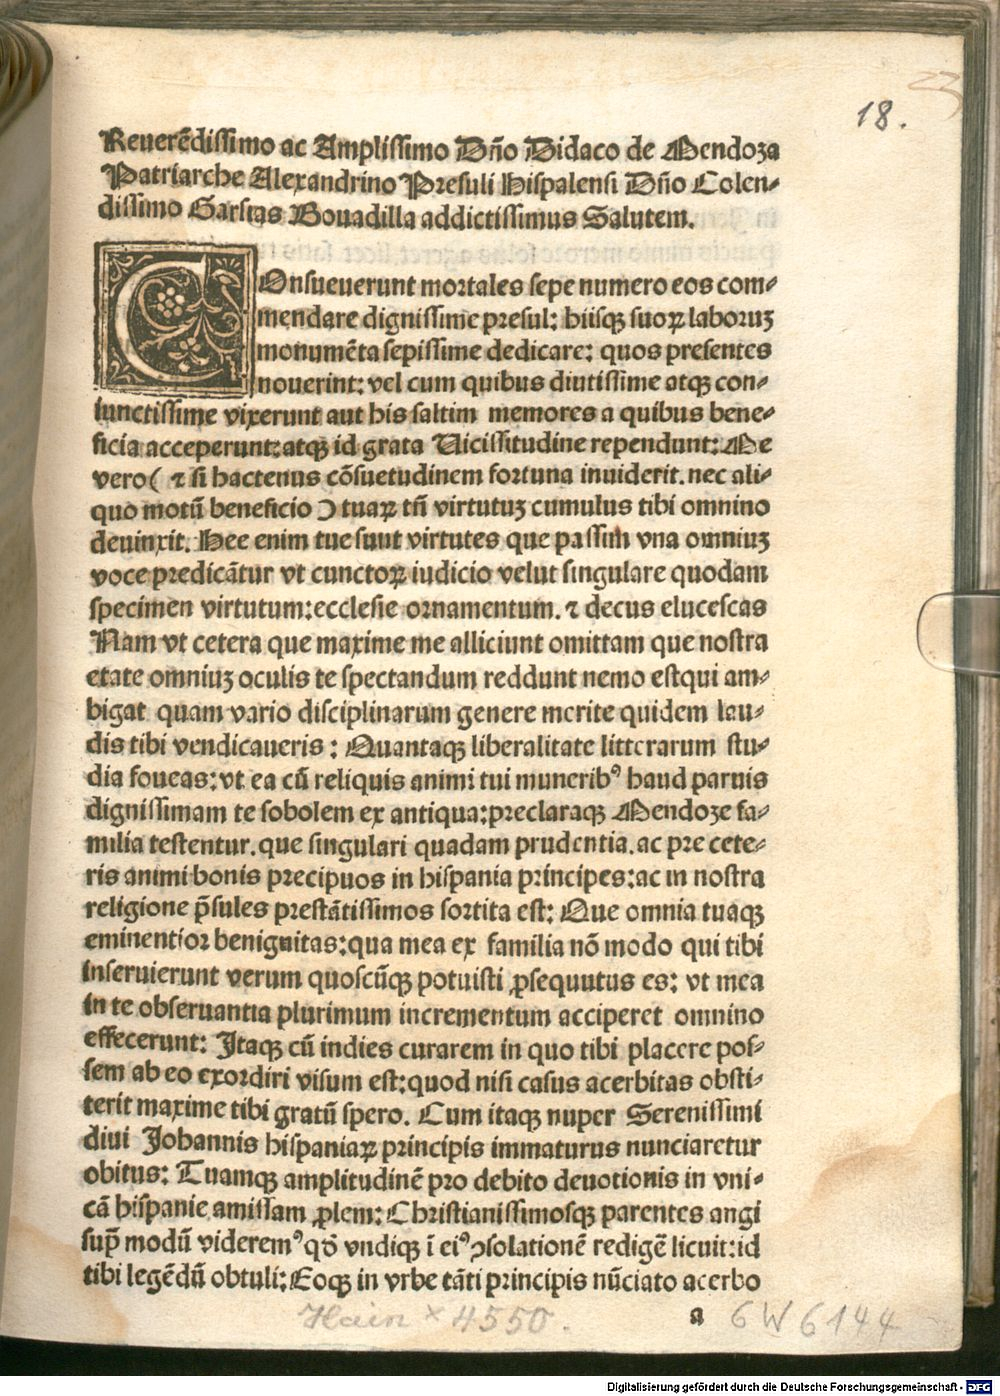 18.
Reuerẽdissimo ac Amplissimo Dño Didaco de Mendoza
Patriarche Alexandrino Presuli Hispalensi Dño Colen⸗
dissimo Garsias Bouadilla addictissimus Salutem.
COnsueuerunt mortales sepe numero eos com⸗
mendare dignissime presul: hiisqꝫ suoꝝ laboruꝫ
monumẽta sepissime dedicare: quos presentes
nouerint: vel cum quibus diutissime atqꝫ con⸗
iunctissime vixerunt aut his saltim memores a quibus bene⸗
ficia acceperunt: atqꝫ id grata Uicissitudine rependunt: Me
vero( ⁊ si hactenus cõsuetudinem fortuna inuiderit. nec ali⸗
quo motũ beneficio ) tuaꝝ tñ virtutuꝫ cumulus tibi omnino
deuinxit. Hee enim tue sunt virtutes que passim vna omniuꝫ
voce predicãtur vt cunctoꝝ iudicio velut singulare quodam
specimen virtutum: ecclesie ornamentum. ⁊ decus elucescas
Nam vt cetera que maxime me alliciunt omittam que nostra
etate omniuꝫ oculis te spectandum reddunt nemo estqui am⸗
bigat quam vario disciplinarum genere merite quidem lau⸗
dis tibi vendicaueris : Quantaqꝫ liberalitate litterarum stu⸗
dia foueas: vt ea cũ reliquis animi tui munerib⁹ haud paruis
dignissimam te sobolem ex antiqua: preclaraqꝫ Mendoze fa⸗
milia testentur. que singulari quadam prudentia. ac pre cete⸗
ris animi bonis precipuos in hispania principes: ac in nostra
religione p̃sules prestãtissimos sortita est: Que omnia tuaqꝫ
eminentior benignitas: qua mea ex familia nõ modo qui tibi
inseruierunt verum quoscũqꝫ potuisti ꝓsequutus es: vt mea
in te obseruantia plurimum incrementum acciperet omnino
effecerunt: Itaqꝫ cũ indies curarem in quo tibi placere pos⸗
sem ab eo exordiri visum est: quod nisi casus acerbitas obsti⸗
terit maxime tibi gratũ spero. Cum itaqꝫ nuper Serenissimi
diui Johannis hispaniaꝝ principis immaturus nunciaretur
obitus: Tuamqꝫ amplitudinẽ pro debito deuotionis in vni⸗
cã hispanie amissam ꝓlem: Christianissimosqꝫ parentes angi
sup̃ modũ viderem⁹ qđ vndiqꝫ ĩ ei⁹ ↄsolationẽ redigẽ licuit: id
tibi legẽdũ obtuli: Eoqꝫ in vrbe tãti principis nũciato acerbo
a
Hain × 4550.
GW 6144
Digitalisierung gefördert durch die Deutsche Forschungsgemeinschaft - DFG